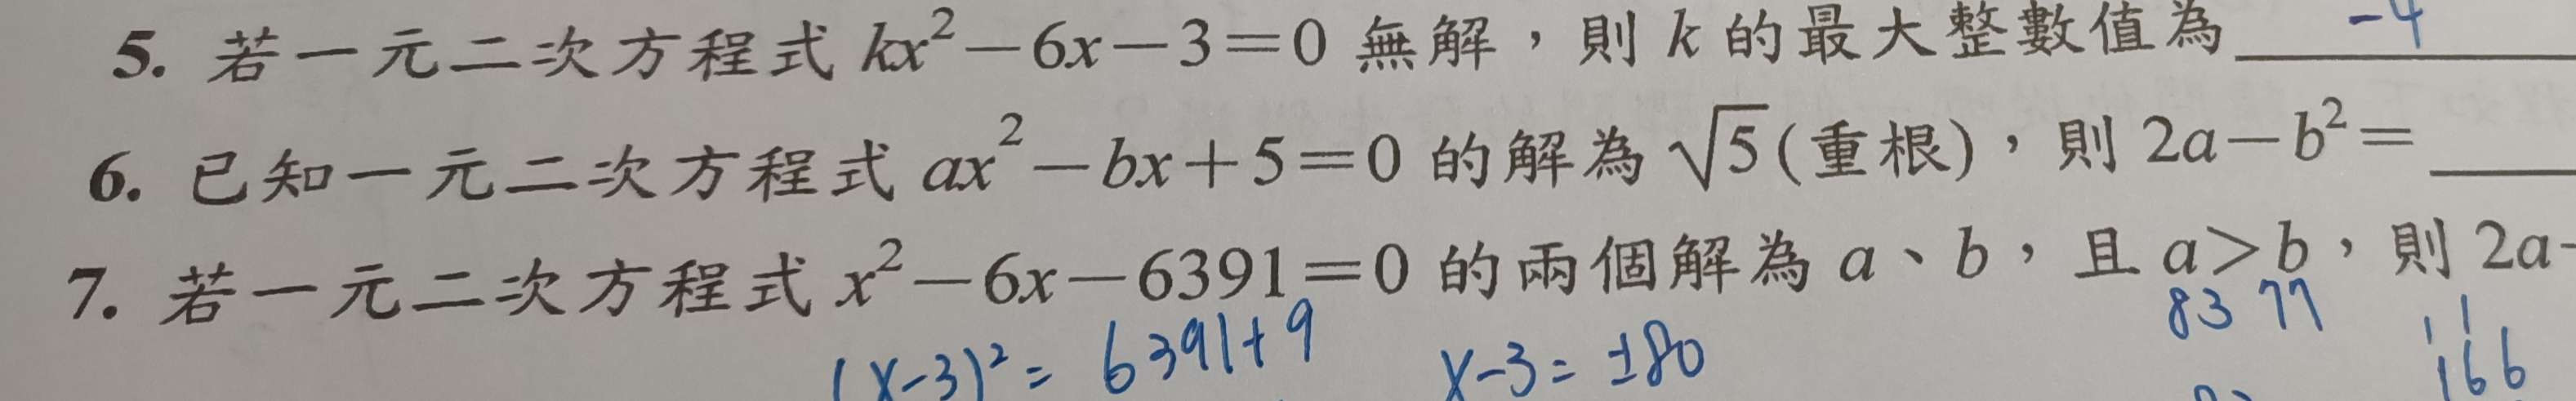 5. 若一元二次方程式 kx²－6x－3＝0 無解，則 k 的最大整數值為 -4
6. 已知一元二次方程式 ax²－bx＋5＝0 的解為 √5(重根)，則 2a－b²＝
7. 若一元二次方程式 x²－6x－6391＝0 的兩個解為 a、b，且 a＞b，則 2a-
83 77
(x-3)² = 6391+9 x-3 = ±80 166